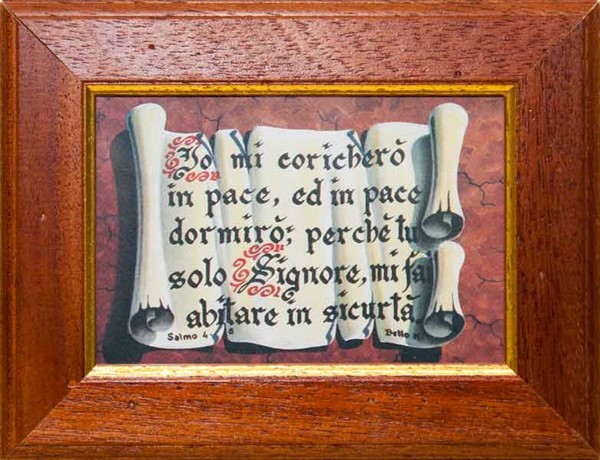 Io mi coricherò
in pace, ed in pace
dormirò; perchè tu
solo Signore, mi fai
abitare in sicurtà
Salmo 4 8